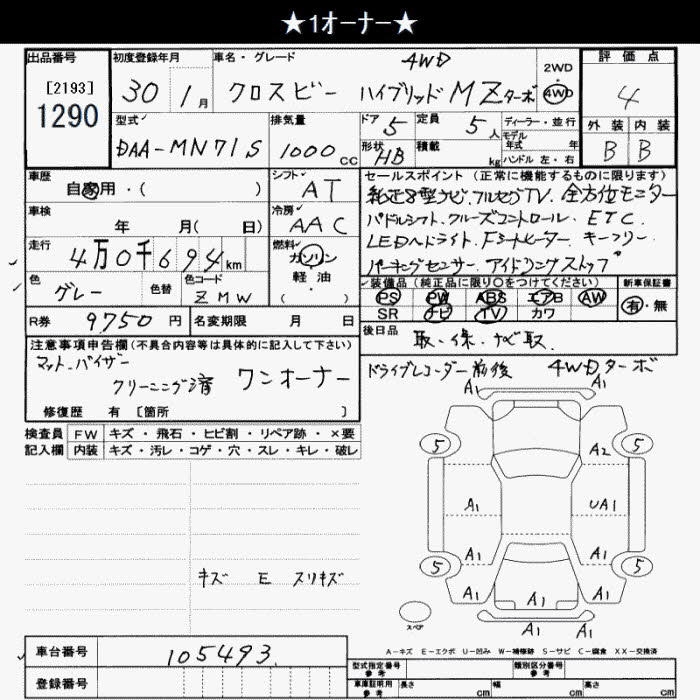 ★1オーナー★
出品番号 初度登録年月 車名・グレード 4WD 2WD 評価点
[2193] 30 1月 クロスビー ハイブリッド MZターボ 4WD 4
1290 型式 排気量 ドア 5 定員 5人 ディーラー・並行 外装 内装
モデル年式 年
DAA-MN71S 1000cc 形状 HB 積載 kg ハンドル 左・右 B B
車歴 シフト AT セールスポイント (正常に機能するものに限ります)
自家用・( ) 純正8型ナビ.フルセグTV.全方位モニター
車検 年 月( 日) 冷房 AAC パドルシフト.クルーズコントロール.ETC
走行 4万0千694km 燃料 ガソリン LEDヘドライト.Fシートヒーター.キーフリー
軽・油 パーキングセンサー.アイドリングストップ
色 グレー 色替 色コード ZMW ( ) 装備品 (純正品に限り〇をつけてください) 新車保証書
PS PW ABS エアB AW 有・無
SR ナビ TV カワ
R券 9750円 名変期限 月 日 後日品 取.保.ナビ取
注意事項申告欄 (不具合内容等は具体的に記入して下さい)
マット.バイザー ドライブレコーダー前後 4WDターボ
クリーニング済 ワンオーナー
修復歴 有 [箇所 ]
検査員 FW キズ・飛石・ヒビ割・リペア跡・×要
記入欄 内装 キズ・汚レ・コゲ・穴・スレ・キレ・破レ
A1 A1
5 A2 5
A1 UA1
A1 A1
5 5
A1 A1 A1
A1 A1
キズ E スリキズ
スペア
A-キズ E-エクボ U-凹み W-補修跡 S-サビ C-腐食 XX-交換済
車台番号 105493
登録番号
型式指定番号 参考 類別区分番号 参考
車庫証明用 参考 長さ cm 幅 cm 高さ cm